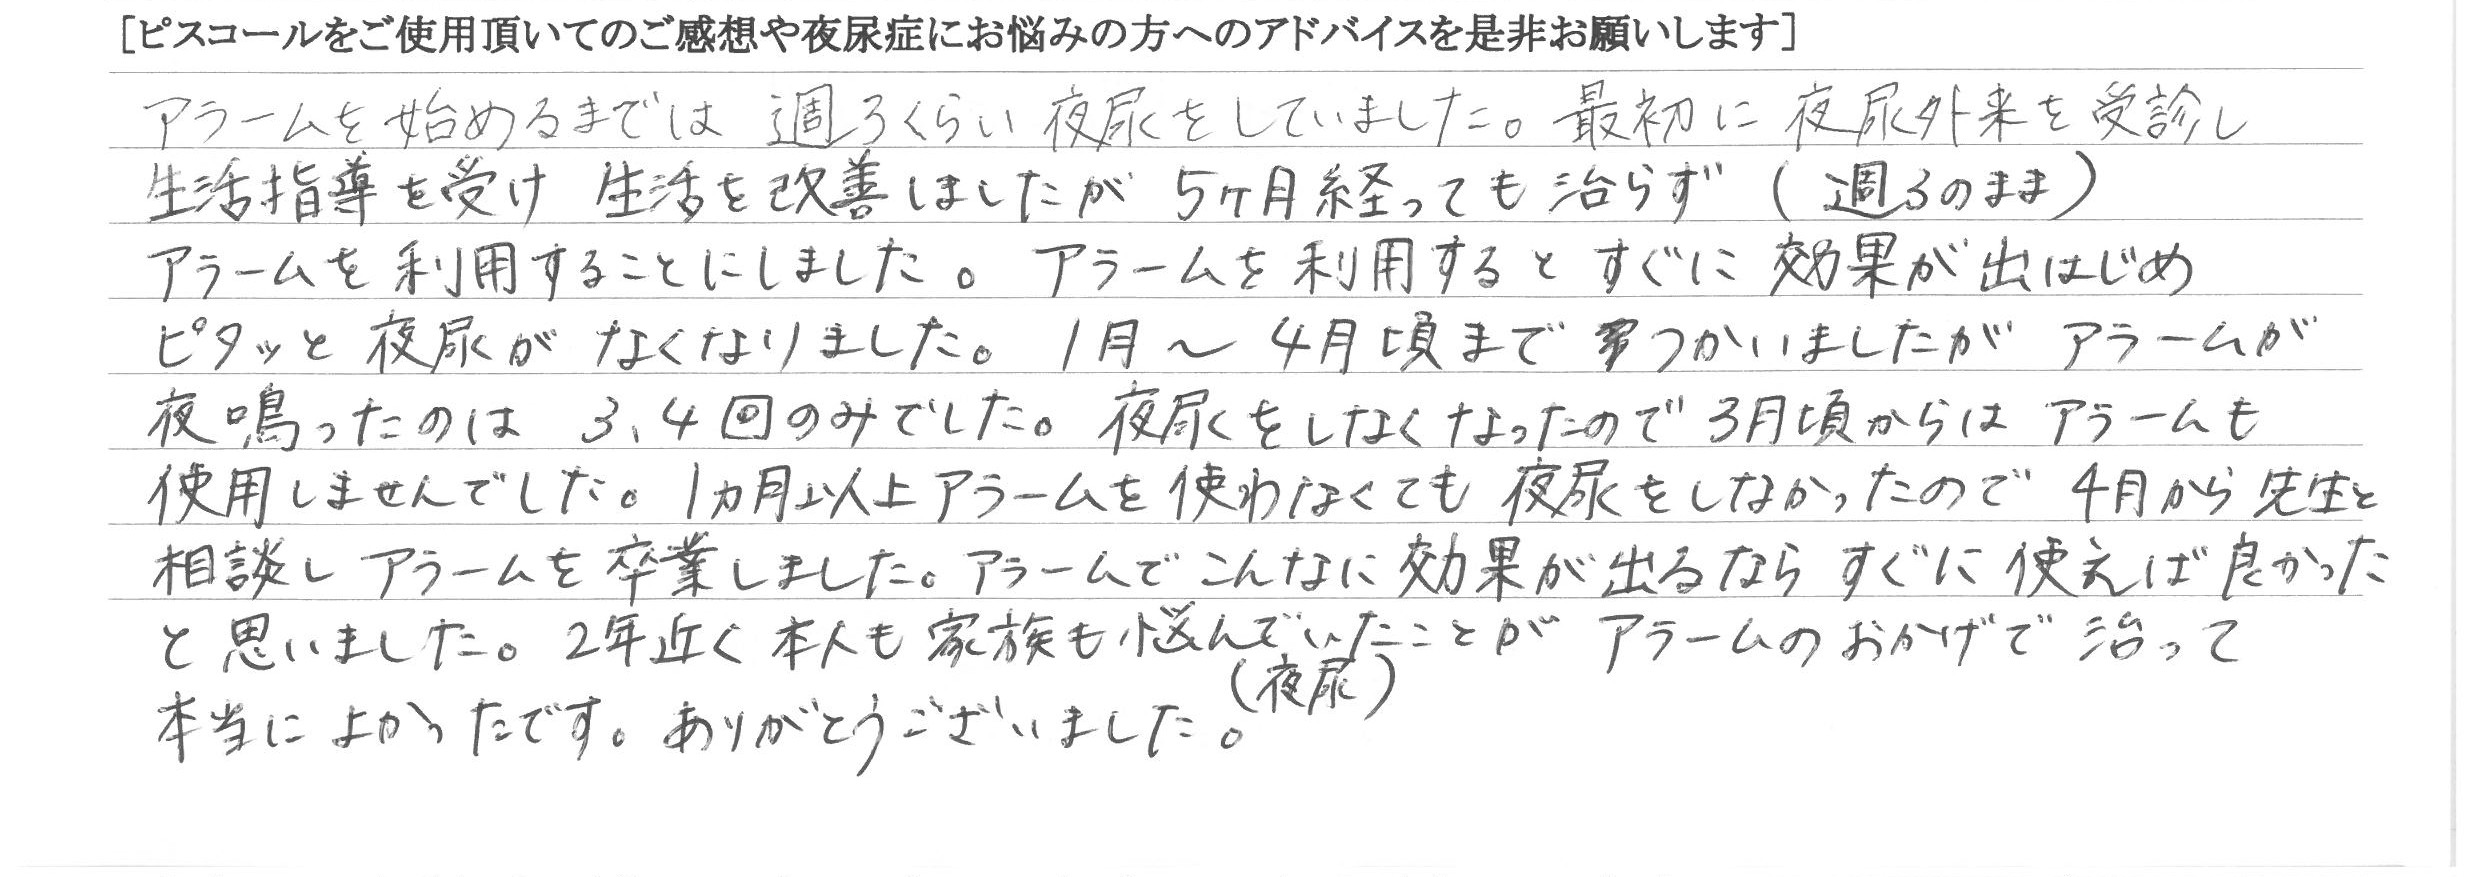 [ピスコールをご使用頂いてのご感想や夜尿症にお悩みの方へのアドバイスを是非お願いします]
アラームを始めるまでは 週3くらい 夜尿をしていました。最初に 夜尿外来を受診し
生活指導を受け 生活を改善しましたが 5ヶ月経っても治らず (週3のまま)
アラームを利用することにしました。 アラームを利用すると すぐに 効果が出はじめ
ピタッと 夜尿が なくなりました。1月〜4月頃まで つかいましたが アラームが
夜鳴ったのは 3、4回のみでした。夜尿をしなくなったので 3月頃からは アラームも
使用しませんでした。1ヵ月以上アラームを使わなくても 夜尿をしなかったので 4月から 先生と
相談し アラームを卒業しました。アラームでこんなに効果が出るなら すぐに使えば良かった
と思いました。2年近く 本人も家族も悩んでいたことが アラームのおかげで 治って
(夜尿)
本当に よかったです。ありがとうございました。